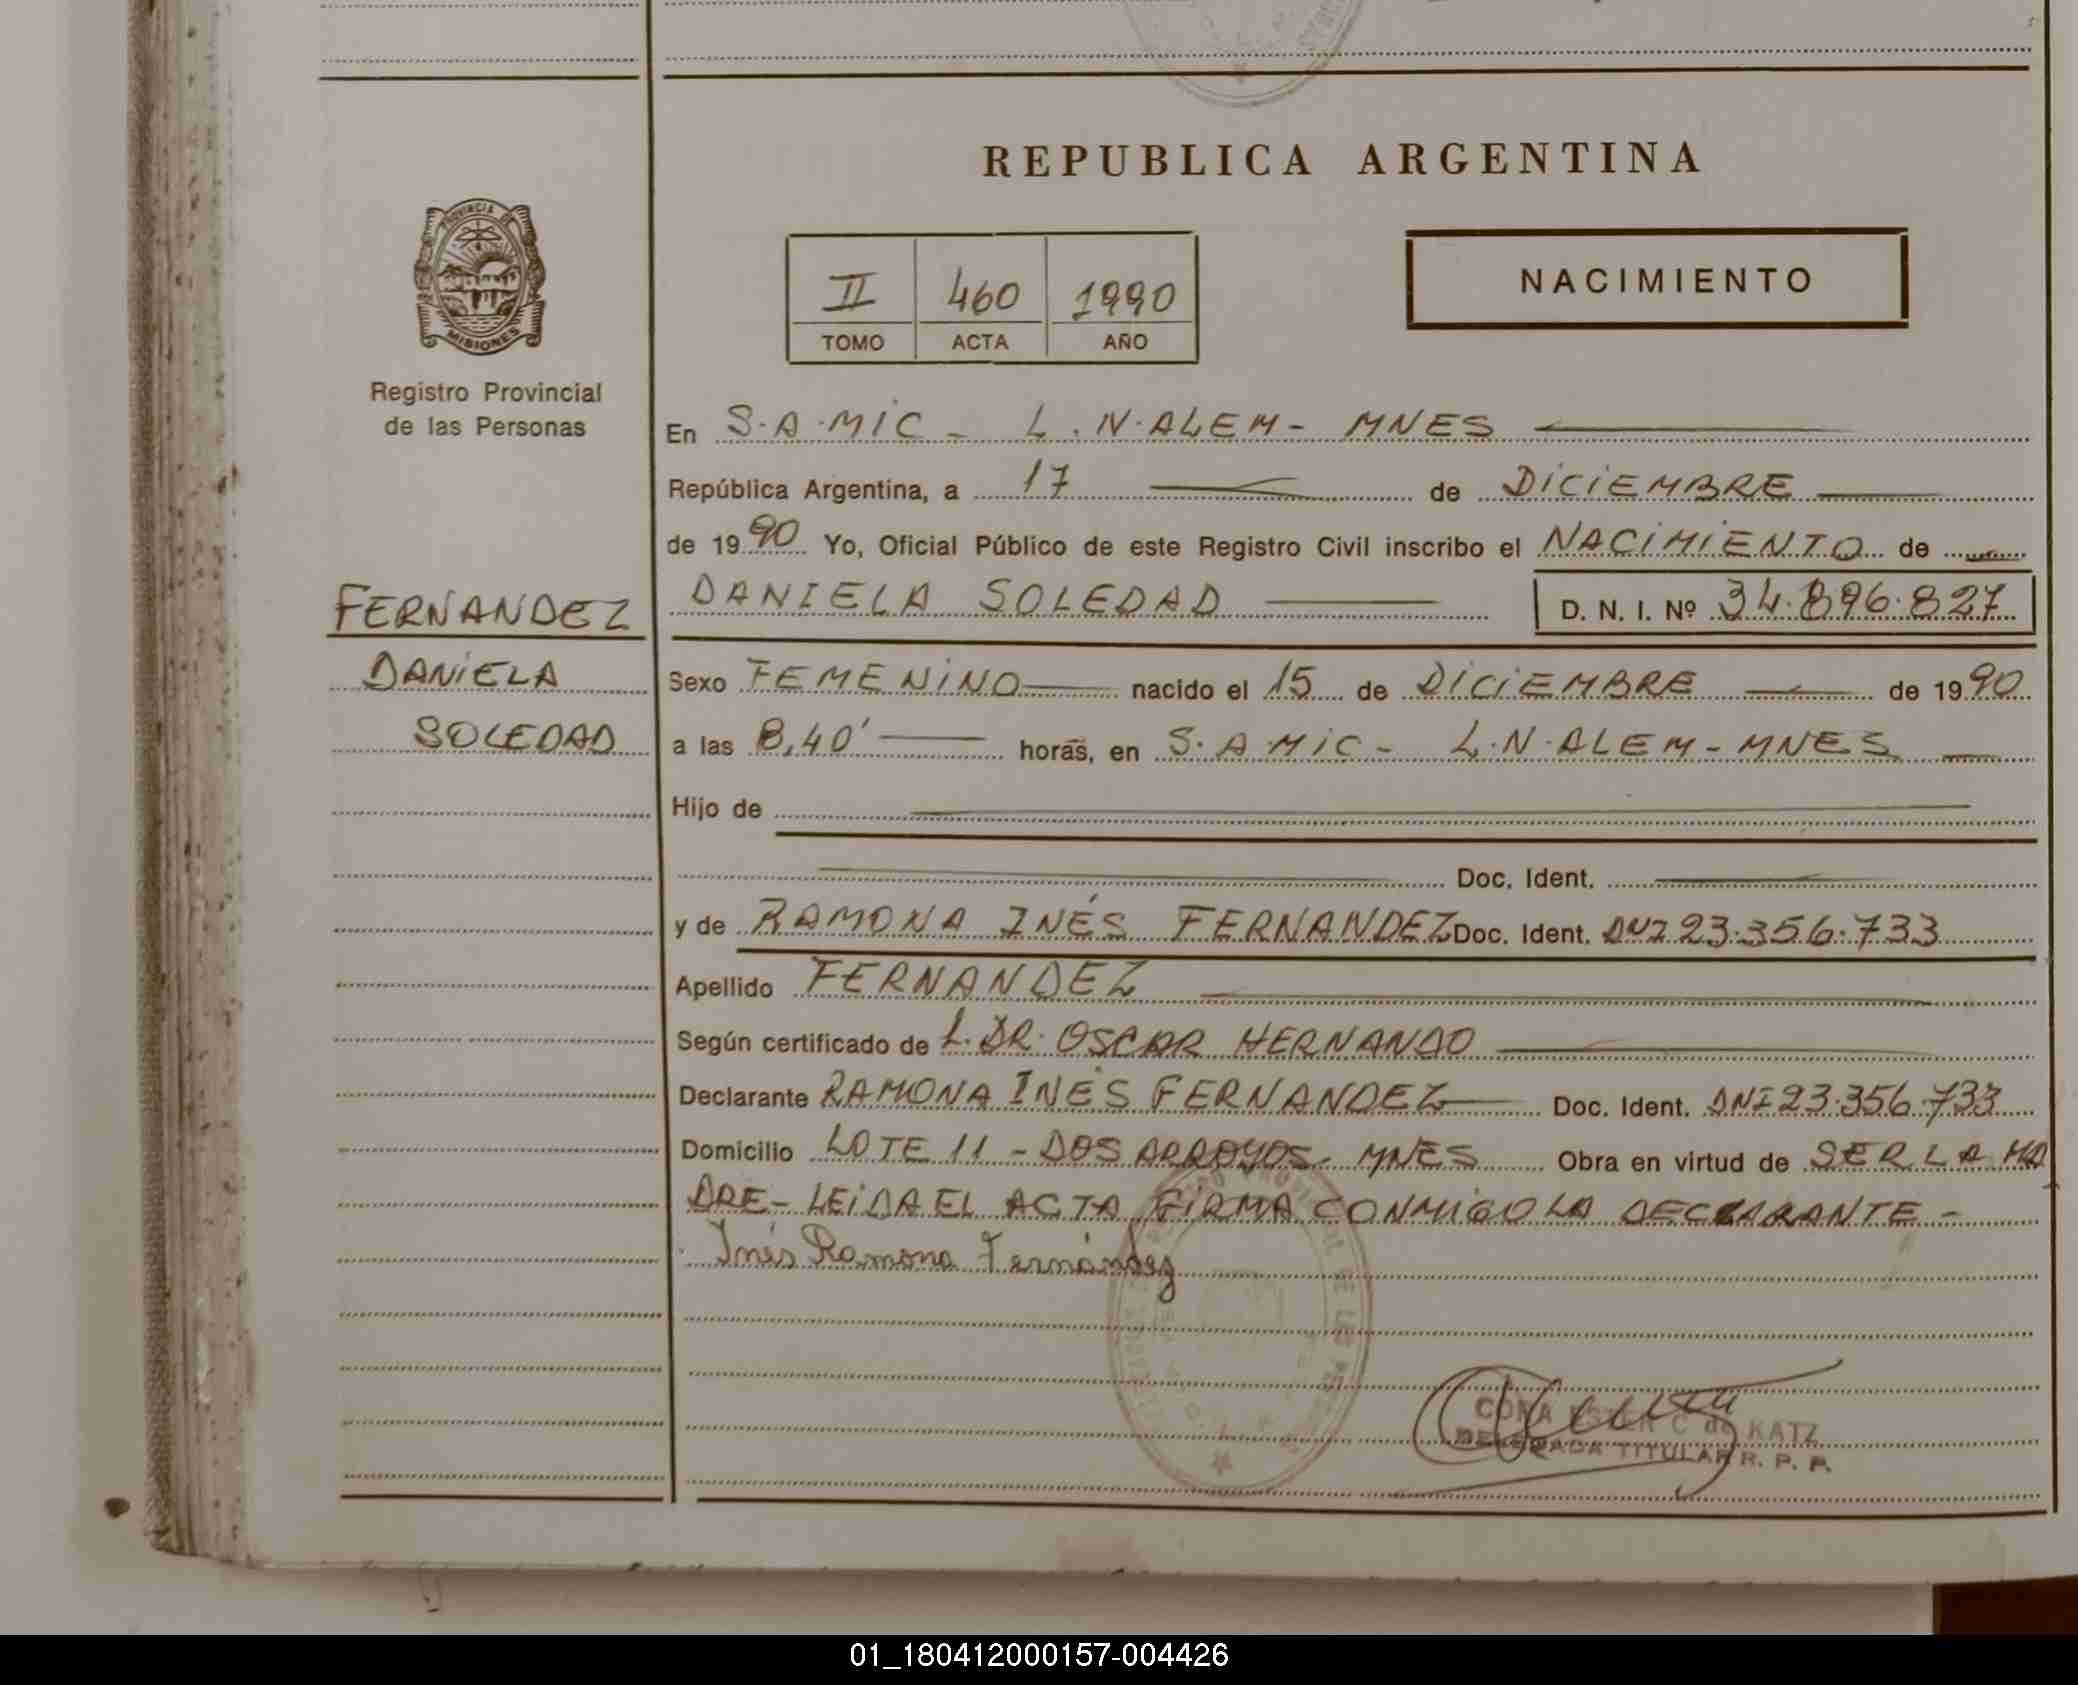 REPUBLICA ARGENTINA
PROVINCIA DE
MISIONES
Registro Provincial
de las Personas
II 460 1990
TOMO ACTA AÑO
NACIMIENTO
En S.A.MIC - L.N.ALEM - MNES
República Argentina, a 17 de DICIEMBRE
de 1990 Yo, Oficial Público de este Registro Civil inscribo el NACIMIENTO de
FERNANDEZ
DANIELA SOLEDAD D. N. I. Nº 34.896.827
DANIELA
SOLEDAD
Sexo FEMENINO nacido el 15 de DICIEMBRE de 1990
a las 8,40' horas, en S.A.MIC - L.N.ALEM - MNES
Hijo de
Doc. Ident.
y de RAMONA INÉS FERNANDEZ Doc. Ident. DNI 23.356.733
Apellido FERNANDEZ
Según certificado de L. DR. OSCAR HERNANDO
Declarante RAMONA INÉS FERNANDEZ Doc. Ident. DNI 23.356.733
Domicilio LOTE 11 - DOS ARROYOS - MNES Obra en virtud de SER LA MA
DRE - LEIDA EL ACTA FIRMA CONMIGO LA DECLARANTE -
Inés Ramona Fernández
CORA ESTER C de KATZ
DELEGADA TITULAR R. P. P.
01_180412000157-004426